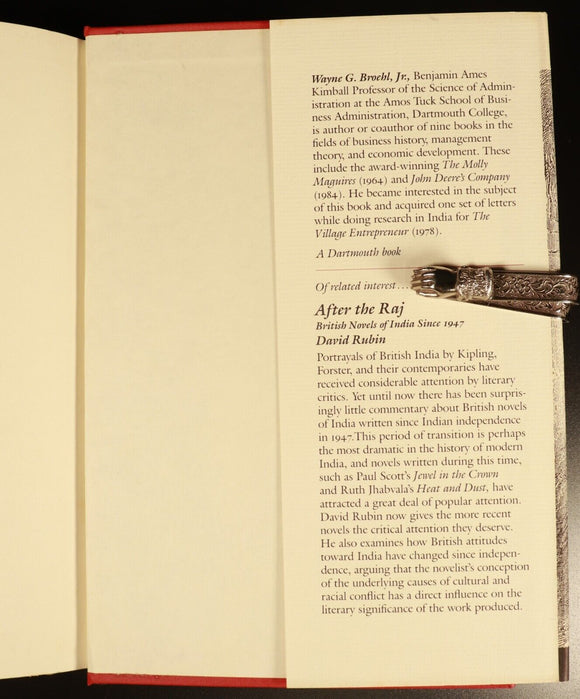 Wayne G. Broehl, Jr., Benjamin Ames
Kimball Professor of the Science of Admin-
istration at the Amos Tuck School of Busi-
ness Administration, Dartmouth College,
is author or coauthor of nine books in the
fields of business history, management
theory, and economic development. These
include the award-winning The Molly
Maguires (1964) and John Deere's Company
(1984). He became interested in the subject
of this book and acquired one set of letters
while doing research in India for The
Village Entrepreneur (1978).
A Dartmouth book
Of related interest . . .
After the Raj
British Novels of India Since 1947
David Rubin
Portrayals of British India by Kipling,
Forster, and their contemporaries have
received considerable attention by literary
critics. Yet until now there has been surpris-
ingly little commentary about British novels
of India written since Indian independence
in 1947.This period of transition is perhaps
the most dramatic in the history of modern
India, and novels written during this time,
such as Paul Scott's Jewel in the Crown
and Ruth Jhabvala's Heat and Dust, have
attracted a great deal of popular attention.
David Rubin now gives the more recent
novels the critical attention they deserve.
He also examines how British attitudes
toward India have changed since indepen-
dence, arguing that the novelist's conception
of the underlying causes of cultural and
racial conflict has a direct influence on the
literary significance of the work produced.